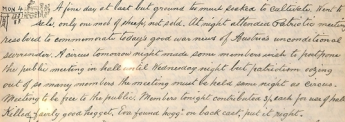 MON 4 A fine day at last but ground too much soaked to cultivate. Went to
sale, only one mob of sheep, not sold. At night attended Patriotic meeting
resolved to commemorate todays good news of Austrias unconditional
surrender. A circus tomorrow night made some members wish to postpone
the public meeting in hall until Wednesday night but patriotism oozing
out of so many members the meeting must be held same night as circus.
Meeting to be free to the public. Members tonight contributed 2/ each for use of hall
Killed fairly good hogget, Eva found on back cast, put it right.